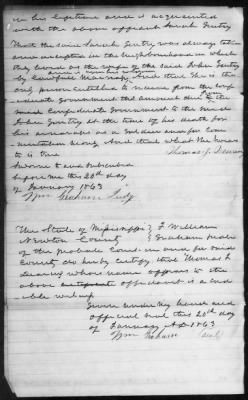 in his lifetime and is acquainted
with the above appeared Sarah Gentry
That the said Sarah Gentry was always taken
and accepted in the neighbourhood in which
they lived as the wife of the said John Gentry
by lawful Marriage and that she is the
only person entitled to receive from the
Government the amount due from the
said Confederate Government to the said
John Gentry at the time of his death for
his arrearage as a soldier and for Com
mutation money And that what he swears
to is true
Thomas J.
Sworn to and Subscribed
before me this 20th day
of January 1863
Wm Graham Judge
The State of Mississippi } I William
Newton County } Graham Judge
of the probate Court in and for said
County do hereby certify that Thomas J.
whose name appears to the
above affidavit is a cred
ible witness
Given under my hand and
official seal this 20th day
of January AD 1863
Wm Graham